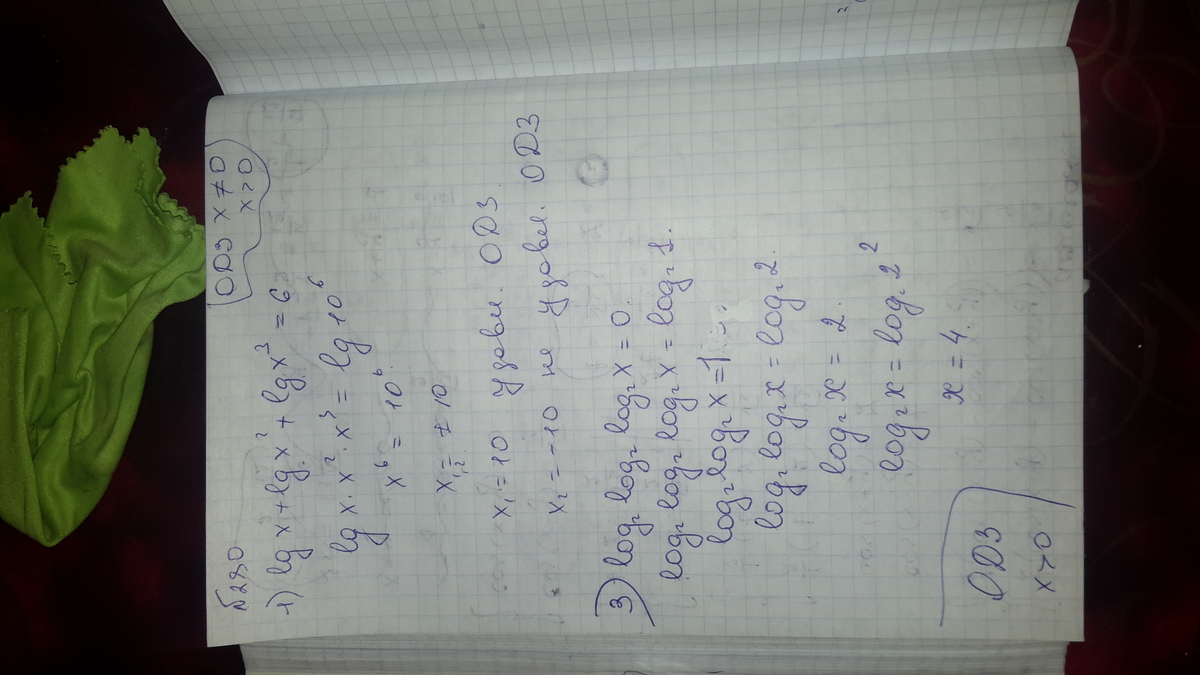 №280
ОДЗ x ≠ 0
x > 0
1) lg x + lg x² + lg x³ = 6
lg x · x² · x³ = lg 10⁶
x⁶ = 10⁶
x₁,₂ = ± 10
x₁ = 10 удовл. ОДЗ.
x₂ = -10 не удовл. ОДЗ
3) log₂ log₂ log₂ x = 0.
log₂ log₂ log₂ x = log₂ 1.
log₂ log₂ x = 1
log₂ log₂ x = log₂ 2.
log₂ x = 2.
log₂ x = log₂ 2²
x = 4.
ОДЗ
x > 0